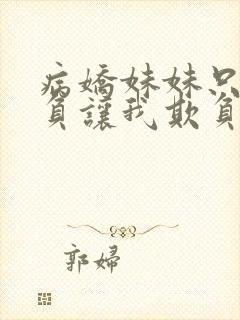 病嬌妹妹只
負讓我欺負
郭婦